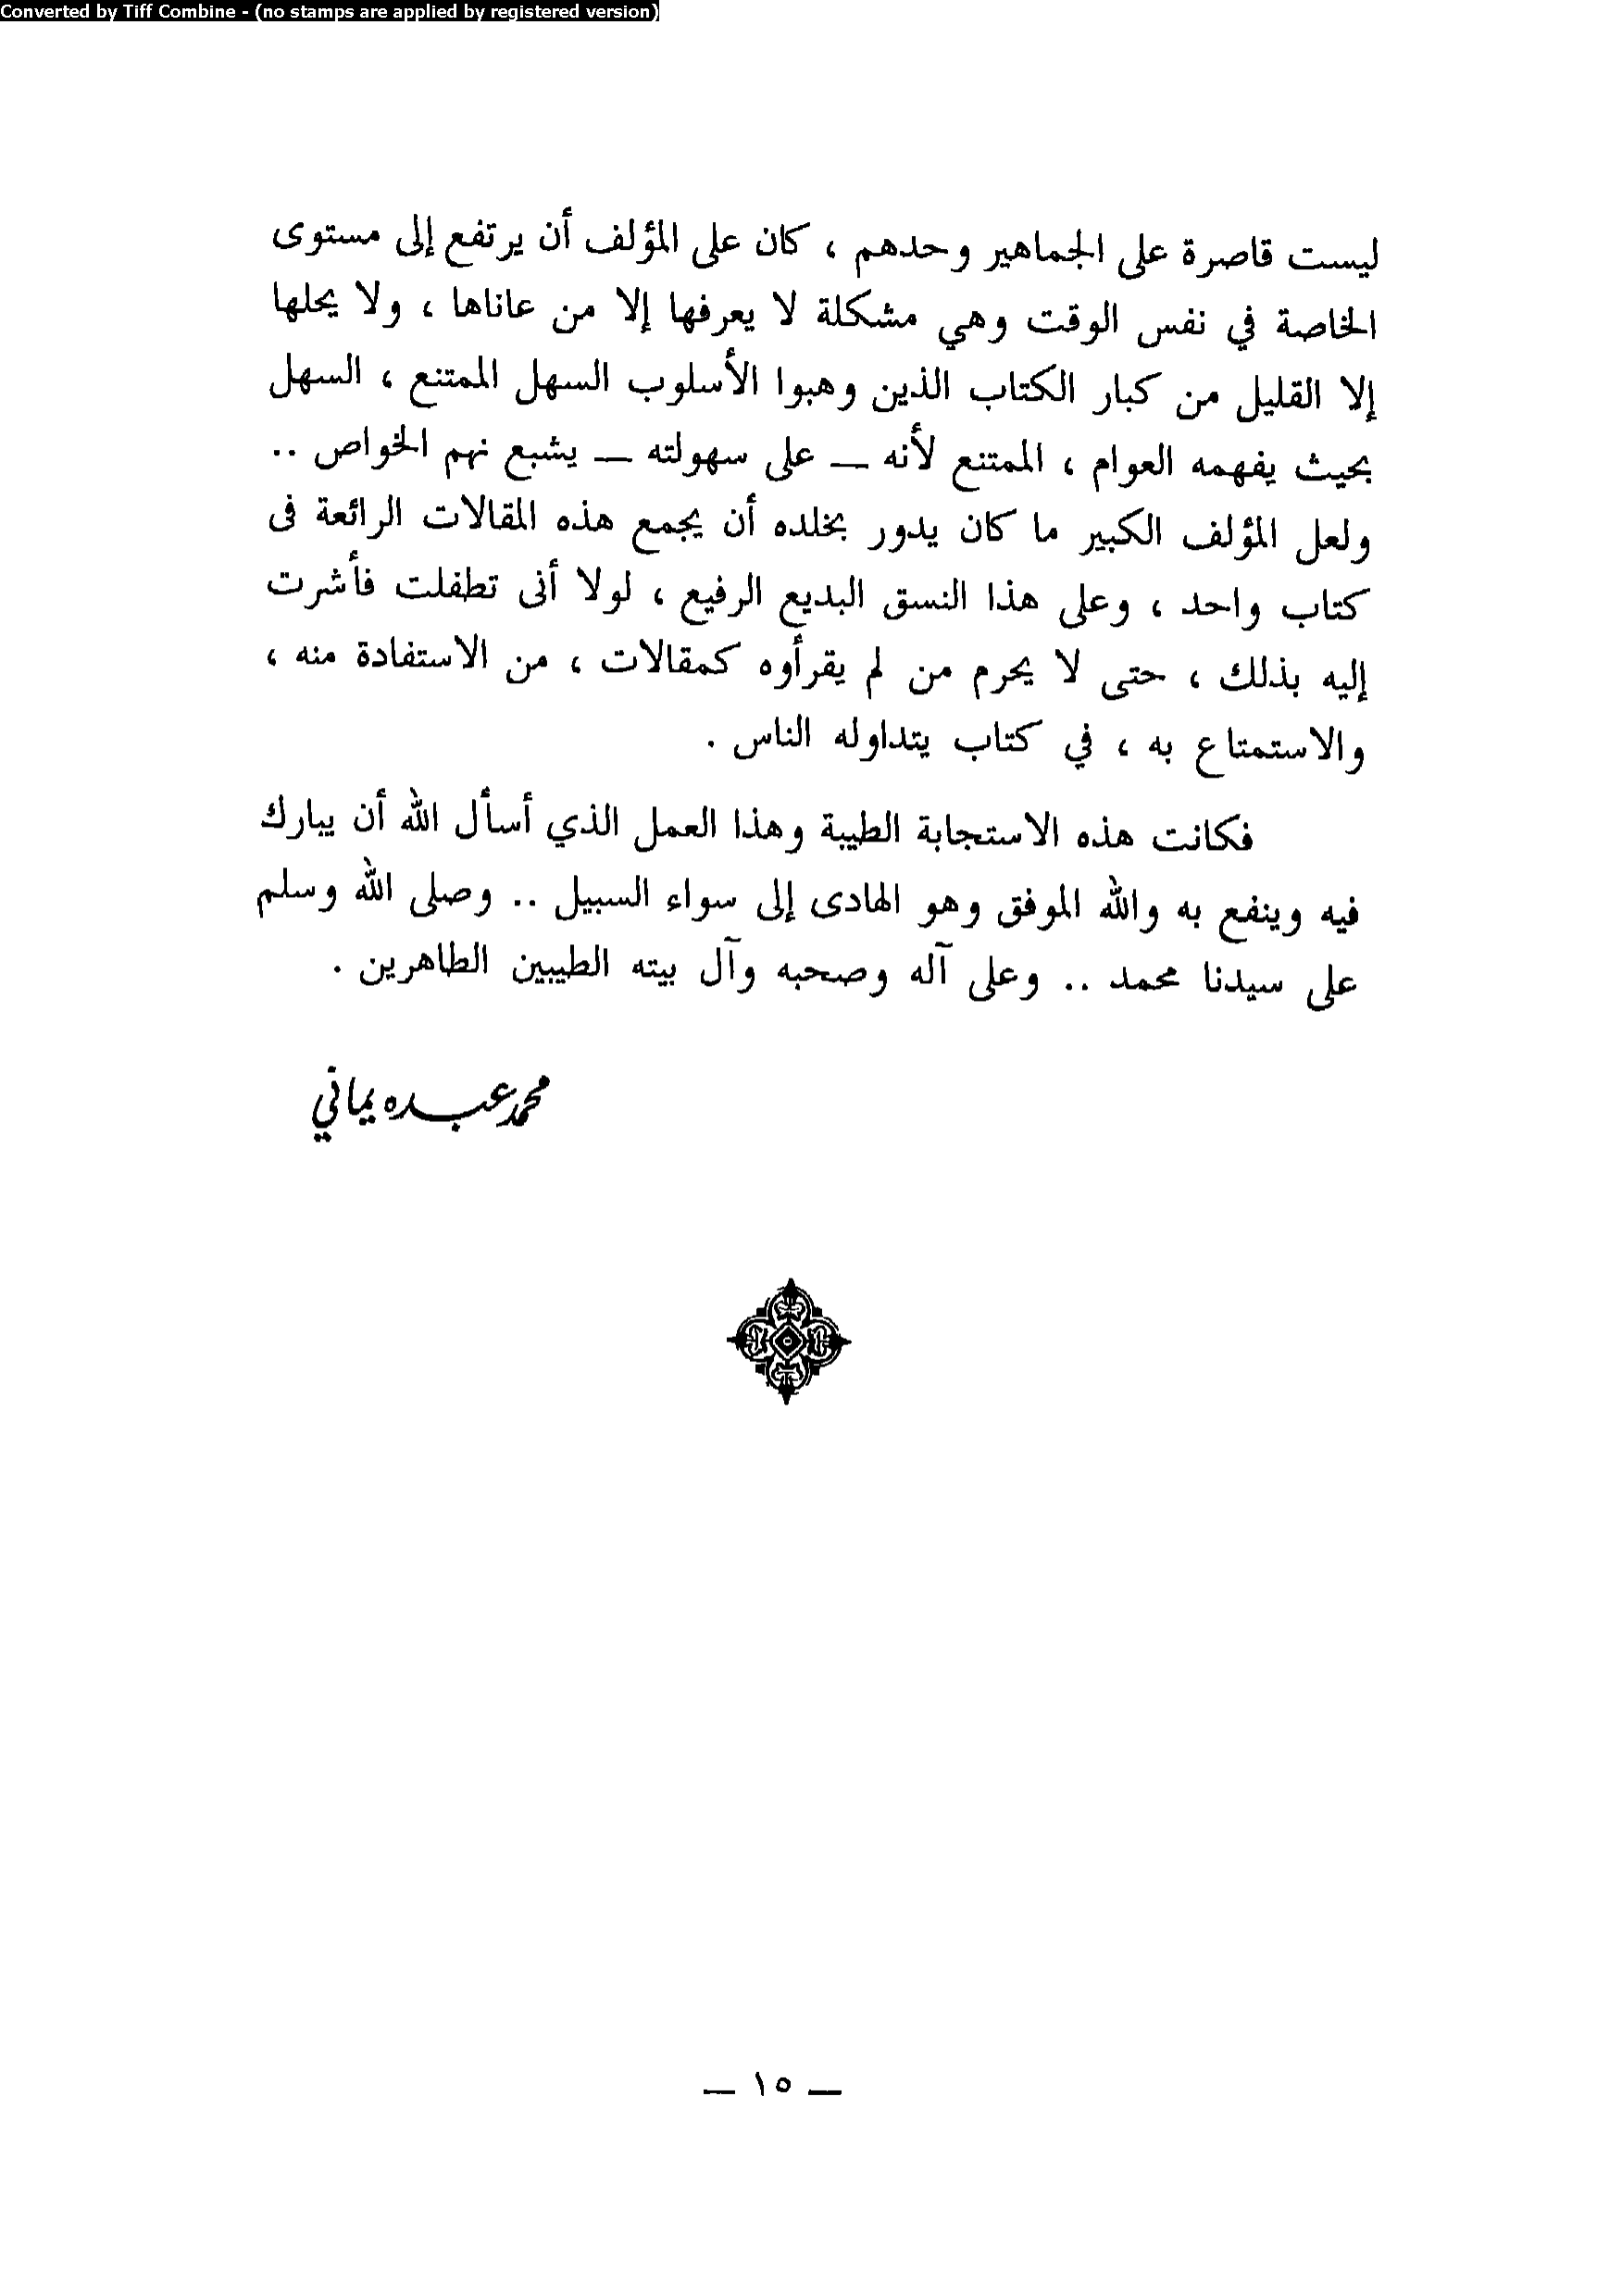 Converted by Tiff Combine - (no stamps are applied by registered version)
ليست قاصرة على الجماهير وحدهم ، كان على المؤلف أن يرتفع إلى مستوى
الخاصة في نفس الوقت وهي مشكلة لا يعرفها إلا من عاناها ، ولا يحلها
إلا القليل من كبار الكتاب الذين وهبوا الأسلوب السهل الممتنع ، السهل
بحيث يفهمه العوام ، الممتنع لأنه — على سهولته — يشبع نهم الخواص ..
ولعل المؤلف الكبير ما كان يدور بخلده أن يجمع هذه المقالات الرائعة فى
كتاب واحد ، وعلى هذا النسق البديع الرفيع ، لولا أنى تطفلت فأشرت
إليه بذلك ، حتى لا يحرم من لم يقرأوه كمقالات ، من الاستفادة منه ،
والاستمتاع به ، في كتاب يتداوله الناس .
فكانت هذه الاستجابة الطيبة وهذا العمل الذي أسأل الله أن يبارك
فيه وينفع به والله الموفق وهو الهادى إلى سواء السبيل .. وصلى الله وسلم
على سيدنا محمد .. وعلى آله وصحبه وآل بيته الطيبين الطاهرين .
محمد عبده يماني
— ١٥ —